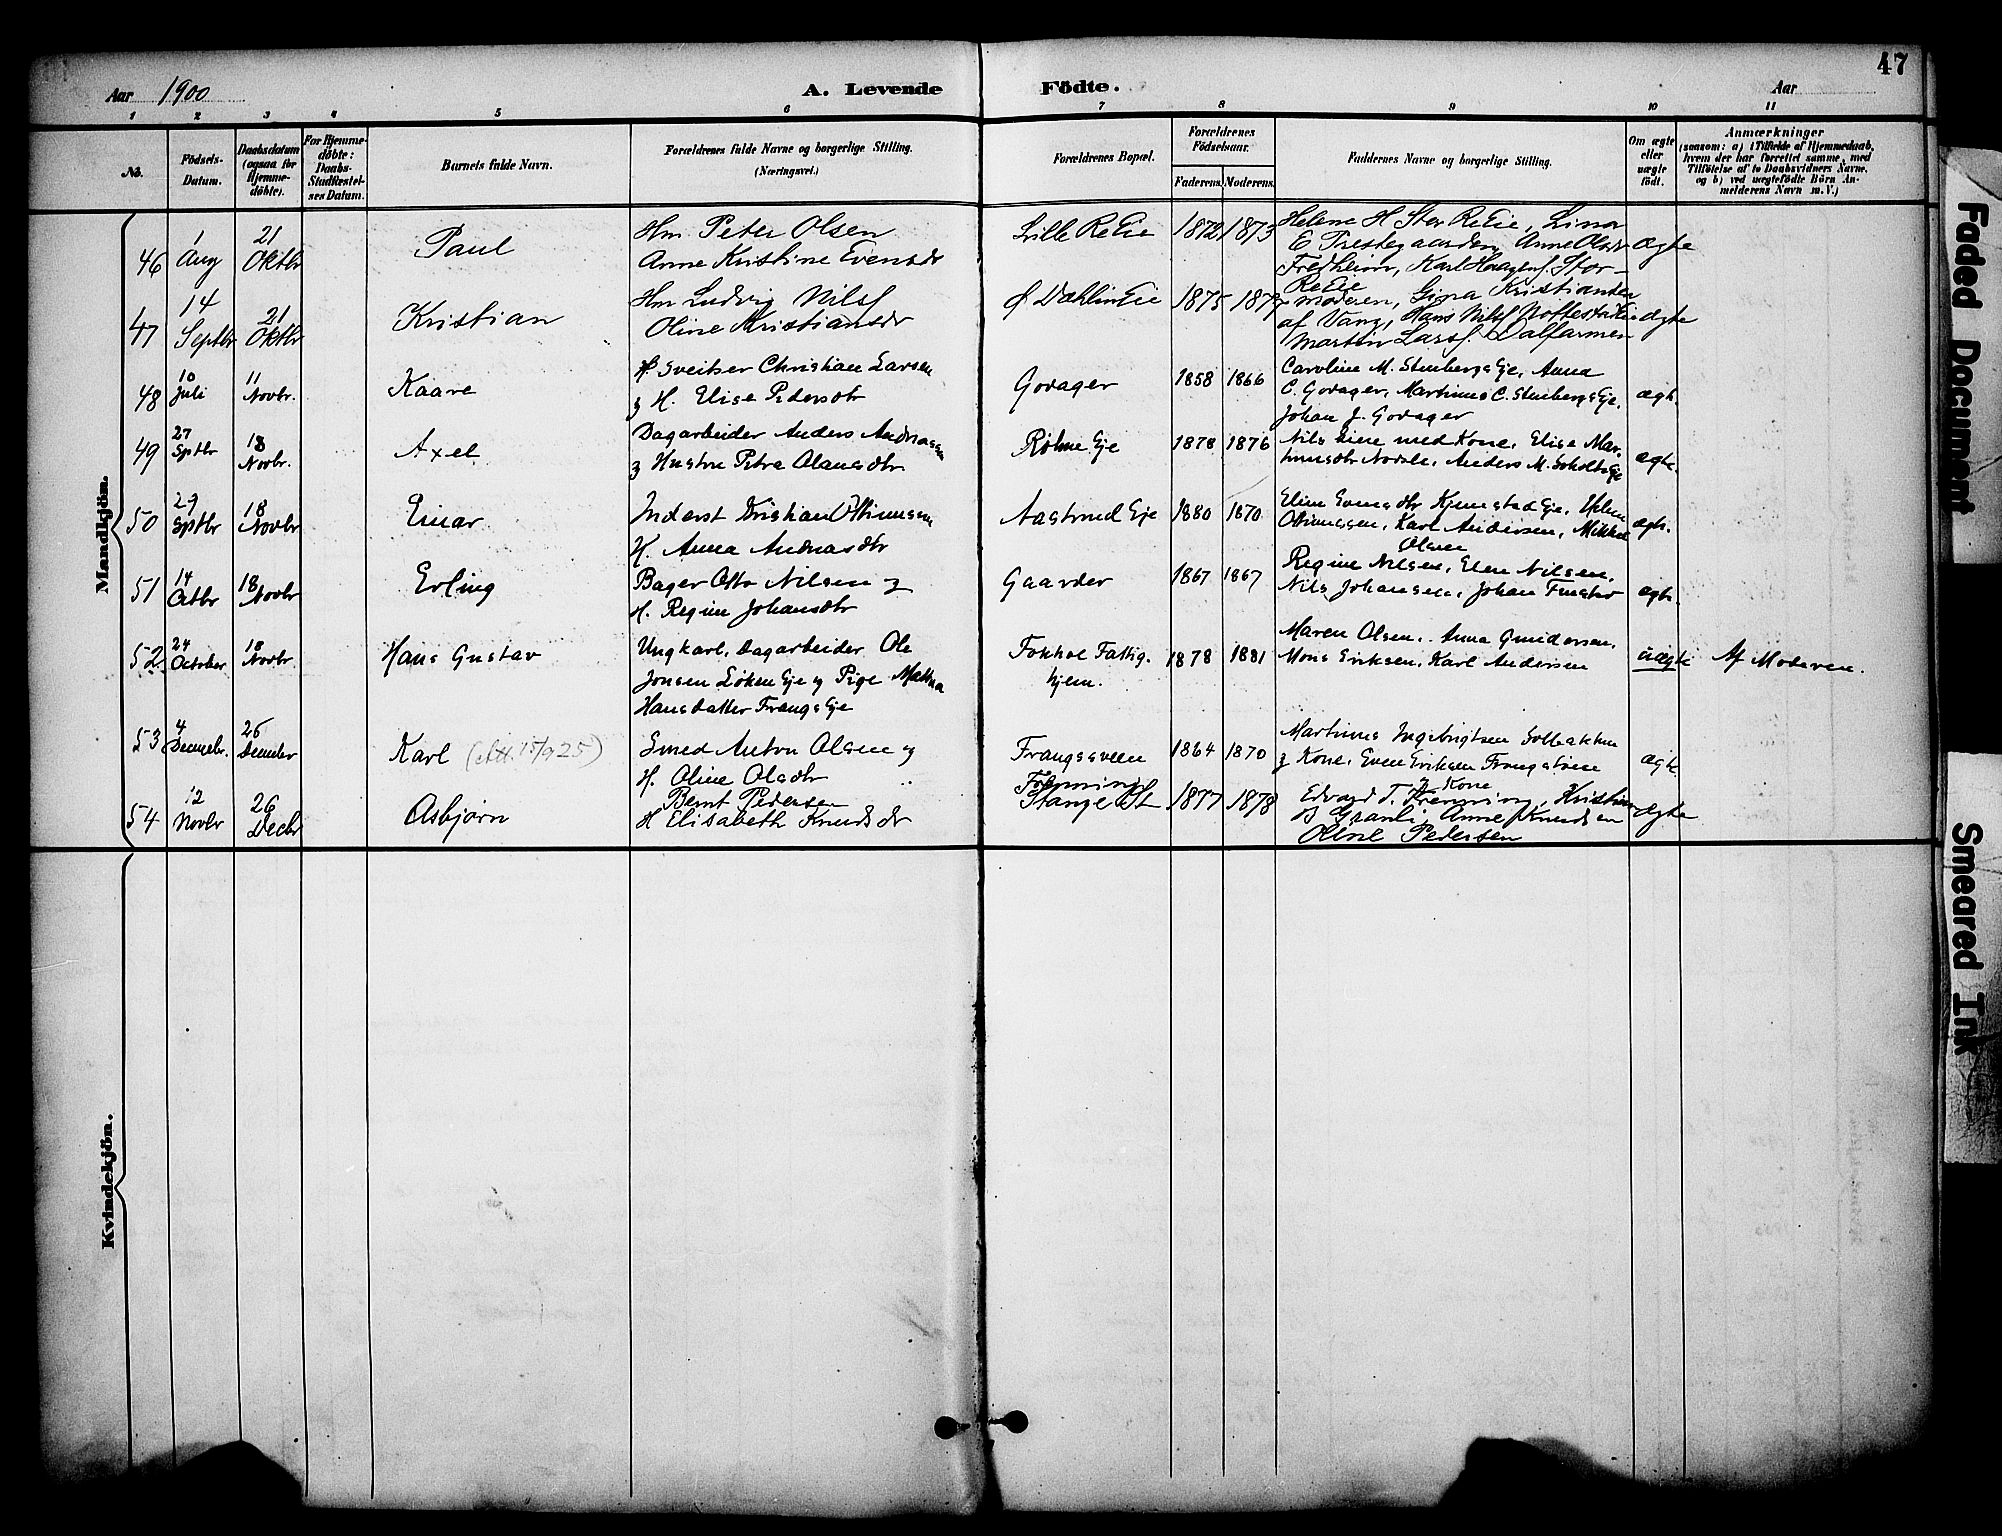 47
Aar 1900
A. Levende
Födte.
Aar
1 2 3 4 5 6 7 8 9 10 11
No.
Födsels-
Datum.
Daabsdatum
(ogsaa for
Hjemme-
döbte).
For Hjemme-
döbte:
Daabs-
Stadfæstel-
ses Datum.
Barnets fulde Navn.
Forældrenes fulde Navne og borgerlige Stilling.
(Næringsvei.)
Forældrenes Bopæl.
Forældrenes
Födselsaar.
Faderens.
Moderens.
Faddernes Navne og borgerlige Stilling.
Om ægte
eller
uægte
födt.
Anmærkninger
(saasom: a) i Tilfælde af Hjemmedaab,
hvem der har forrettet samme, med
Tilföielse af to Daabsvidners Navne,
og b) ved uægtefödte Börn An-
melderens Navn m. V.)
Mandkjön.
46 1 Aug 21 Oktbr Paul
Hm. Peter Olsen
Anne Kristine Evensdr
Lille Re Eie 1872 1873
Helene H Stor Re Eie, Lina
E Prestegaarden, Anne Olsdr
Fredheim, Karl Haagens. Stor-
Re Eie
ægte
47 14 Septbr 21 Oktbr Kristian
Hm Ludvig Nilsf
Oline Kristiansdr
Ø Dæhlin Eie 1875 1877
moderen, Gina Kristiansen
af Vang, Hans Nilsf
Martin Larsf. Dalfarmen
ægte
48 10 Juli 11 Novbr. Kaare
Sveitser Christian Larsen
og H. Elise Pedersdtr
Godager 1858 1866
Caroline M. Stenbergs Eje, Anna
C. Godager, Martinus C. Stenbergs Eje,
Johan J. Godager
ægte.
49 27 Sptbr 18 Novbr. Axel
Dagarbeider Anders Andreasen
og Hustru Petra Olausdtr
Røhne Eje 1878 1876
Nils med Kone, Elise Mar-
tinusdtr Nordli, Anders M.
ægte.
50 29 Sptbr 18 Novbr Einar
Inderst Kristian Ottinussen
H. Anna Andreasdtr
Aastrud Eje 1880 1870
Eline Evensdtr Kjemstad Eje, Helene
Ottinussen, Karl Andersen, Mikkel
Olsen
ægte.
51 14 Octbr 18 Novbr Erling
Bager Otto Nilsen og
H. Regine Johansdtr
Gaarder 1867 1867
Regine Nilsen, Elen Nilsen,
Nils Johansen, Johan
ægte.
52 24 October 18 Novbr. Hans Gustav
Ungkarl, Dagarbeider Ole
Jonsen Løken Eje og Pige Mathea
Hansdatter Frangs Eje
Fokhol Fattig-
hjem.
1878 1881
Maren Olsen, Anna Gundersen,
Mons Eriksen, Karl Andersen
uægte
Af Moderen.
53 4 Decmebr. 26 Decmbr Karl (Att. 15/9 25)
Smed Anton Olsen og
H. Oline Olsdtr
Frangsøveen 1864 1870
Martinus Ingebrigtsen Solbakken
og Kone, Even Eriksen Frangstuen
ægte
54 12 Novbr 26 Decbr Asbjørn
Bernt Pedersen
H Elisabeth Knudsdr
Stange St 1877 1878
og Kone
Edvard T. Fremming, Kristian
B Granli, Anne Knudsen
Oline Pedersen
ægte
Kvindekjön.
Faded Document
Smeared Ink